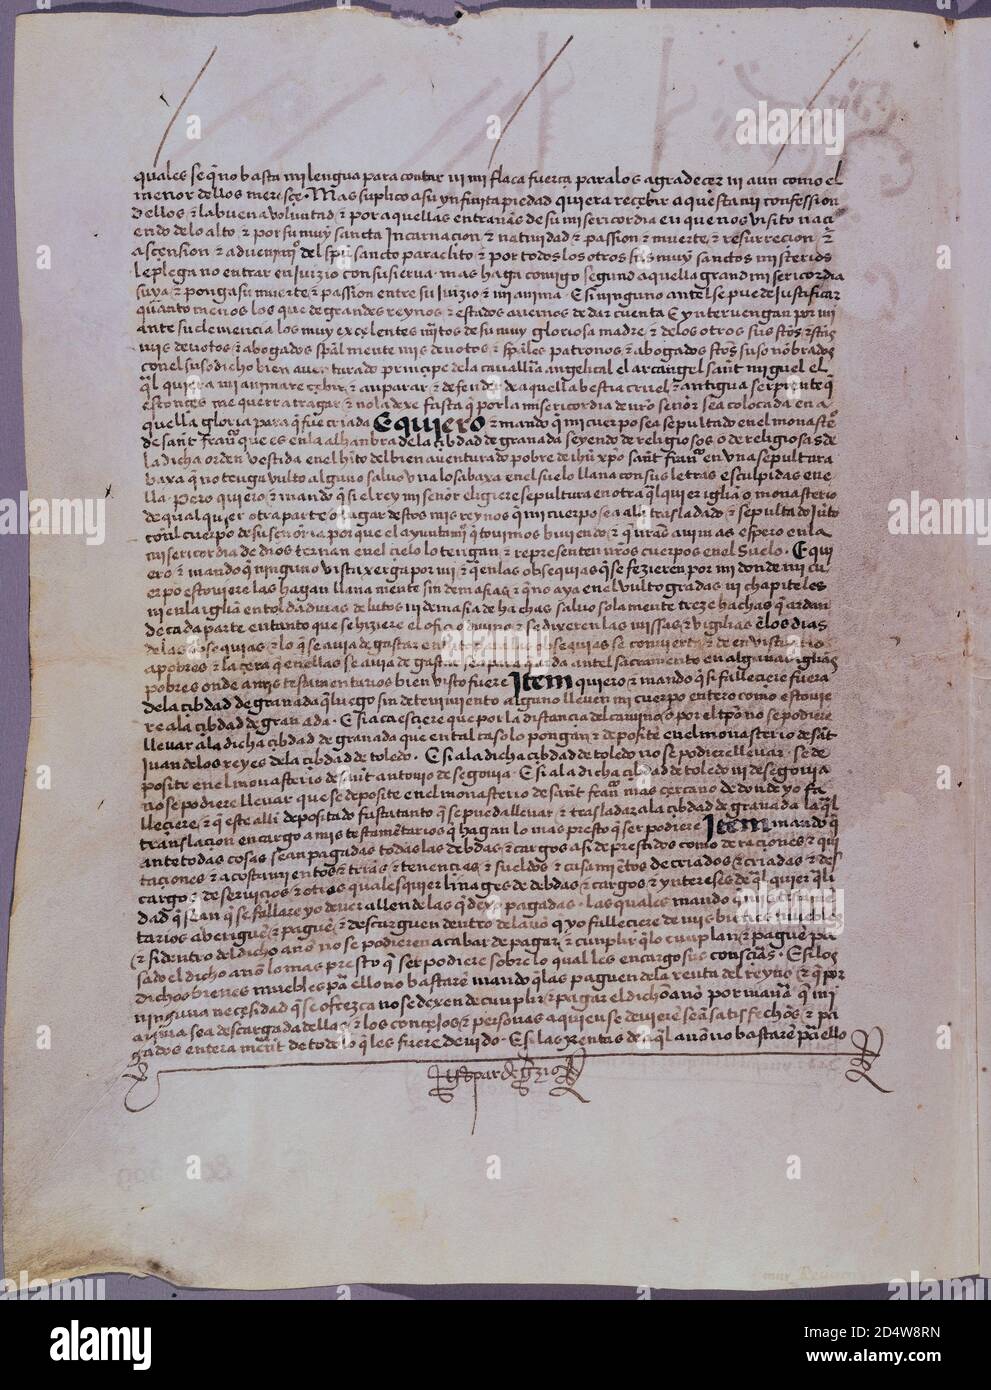 quales se q̃ no basta mi lengua para contar ni mi flaca fuerça para los agradeçer ni aun como el
menor dellos meresçe. Mas suplico a su ynfinita piedad quiera reçebir aquesta mi confession
dellos & la buena voluntad & por aquellas entrañas de su misericordia en que nos visito naci
endo de lo alto & por su muy sancta Incarnacion & natiuidad & passion & muerte & resurrecion &
ascension & aduenimi͂º del spũ sancto paraclito & por todos los otros sus muy sanctos misterios
le plega no entrar en juizio con su sierua mas haga comigo segund aquella grand misericordia
suya & ponga su muerte & passion entre su juizio & mi anima. E si ninguno antel se puede justificar
quanto menos los que de grandes reynos & estados auemos de dar cuenta E yntervengan por mi
ante su clemencia los muy excelentes mi͂tos de su muy gloriosa madre & de los otros sus sc̃tos & sc̃tas
mis deuotos & abogados spãl mente mis deuotos & spãles patronos & abogados sc̃tos suso nõbrados
con el susodicho bien auenturado principe de la cauallria angelical el arcangel sant miguel el
q̃l quiera mi anima reçebir & amparar & defender de aquella bestia cruel & antigua serpiente q̃
estonces me querra tragar & no la dexe fasta q̃ por la misericordia de nr̃o señor sea colocada en a
quella gloria para q̃ fue criada E quiero & mando q̃ mi cuerpo sea sepultado en el monast̃º
de sant franc̃º que es en la alhambra de la çibdad de granada seyendo de religiosos o de religiosas de
la dicha orden vestida en el hi͂to del bien auenturado pobre de ihũ xp̃o sant franc̃º en vna sepultura
baxa q̃ no tenga vulto alguno saluo vna losa baxa en el suelo llana con sus letras esculpidas en e
lla. Pero quiero & mando q̃ si el rey mi señor eligiere sepultura en otra q̃l quier iglia͂ o monasterio
de qual quier otra parte o lugar destos mis reynos q̃ mi cuerpo sea alli trasladado & sepultado jũto
con el cuerpo de su señoria por que el ayuntami͂º q̃ touimos biuiendo & q̃ nr̃as animas espero en la
misericordia de dios ternan en el cielo lo tengan & representen nr̃os cuerpos en el suelo. E qui
ero & mando q̃ ninguno vista xerga por mi & q̃ en las obsequias q̃ se fezieren por mi donde mi cu
erpo estouiere las hagan llana mente sin demasias & q̃ no aya en el vulto gradas ni chapiteles
ni en la iglia͂ entoldaduras de lutos ni demasia de hachas saluo sola mente treze hachas q̃ ardan
de cada parte en tanto que se hiziere el ofiçio diuino & se dixeren las missas & vigilias ẽ los dias
de las obsequias & lo q̃ se auia de gastar en luto para las obsequias se conuierta & de en vistuario
a pobres & la çera q̃ en ellas se auia de gastar sea para q̃ arda antel sacramento en algunas iglias͂
pobres onde a mis testamentarios bien visto fuere Item quiero & mando q̃ si falleciere fuera
de la çibdad de granada q̃ luego sin detenimiento alguno lleuen mi cuerpo entero como estouie
re a la çibdad de granada. E si acaesciere que por la distancia del camino o por el tp̃o no se podiere
lleuar a la dicha çibdad de granada que en tal caso lo pongan & depositẽ en el monasterio de sãt
Juan de los reyes de la çibdad de toledo. E si a la dicha çibdad de toledo no se podiere lleuar. se de
posite en el monasterio de sant antonio de segouia. E si a la dicha çibdad de toledo ni de segouia
no se podiere lleuar que se deposite en el monasterio de sant franc̃º mas çercano de donde yo fa
lleciere & q̃ este alli depositado fasta tanto q̃ se pueda lleuar & trasladar a la çibdad de granada la q̃l
translacion encargo a mis testamẽtarios q̃ hagan lo mas presto q̃ ser podiere Item mando q̃
ante todas cosas sean pagadas todas las debdas & cargos asi de prestidos como de raciones & qui
taciones & acostamientos & tr̃ras & tenencias & sueldos & casami͂etos de criados & criadas & des
cargos & de seruicios & otros quales quier linages de debdas & cargos & yntereses de q̃l quier q̃li
dad q̃ sean q̃ se fallare yo deuer allende las q̃ dexo pagadas. las quales mando q̃ mis testamẽ
tarios auerigue͂ & pague͂ & descarguen dentro del año q̃ yo falleciere de mis bienes muebles
& si dentro del dicho año no se podieren acabar de pagar & cumplir q̃ lo cumplan & paguẽ pa
sado el dicho año lo mas presto q̃ ser podiere sobre lo qual les encargo sus consc̃ias. E si los
dichos bienes muebles pã ello no bastarẽ mando q̃ las paguen de la renta del reyno & q̃ por
ninguna necesidad q̃ se ofrezca no se dexen de cunplir & pagar el dicho año por manr̃a q̃ mi
anima sea descargada dellas & los conçejos & personas a quien se deuierẽ sean satisfechos & pa
gados entera mente de todo lo q̃ les fuere deuido. E si las rentas de aq̃l año no bastarẽ pã ello
Gaspar de grizio
alamy
Image ID: 2D4W8RN
www.alamy.com